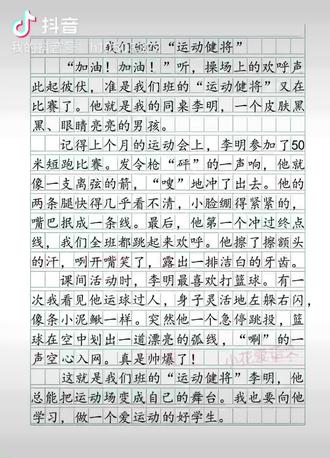 抖音
我们班的“运动健将”
“加油！加油！”听，操场上的欢呼声
此起彼伏，准是我们班的“运动健将”又在
比赛了。他就是我的同桌李明，一个皮肤黑
黑、眼睛亮亮的男孩。
记得上个月的运动会上，李明参加了50
米短跑比赛。发令枪“砰”的一声响，他就
像一支离弦的箭，“嗖”地冲了出去。他的
两条腿快得几乎看不清，小脸绷得紧紧的，
嘴巴抿成一条线。最后，他第一个冲过终点
线，我们全班都跳起来欢呼。他擦了擦额头
的汗，咧开嘴笑了，露出一排洁白的牙齿。
课间活动时，李明最喜欢打篮球。有一
次我看见他运球过人，身子灵活地左躲右闪，
像条小泥鳅一样。突然他一个急停跳投，篮
球在空中划出一道漂亮的弧线，“唰”的一
声空心入网。真是帅爆了！
这就是我们班的“运动健将”李明，他
总能把运动场变成自己的舞台。我也要向他
学习，做一个爱运动的好学生。